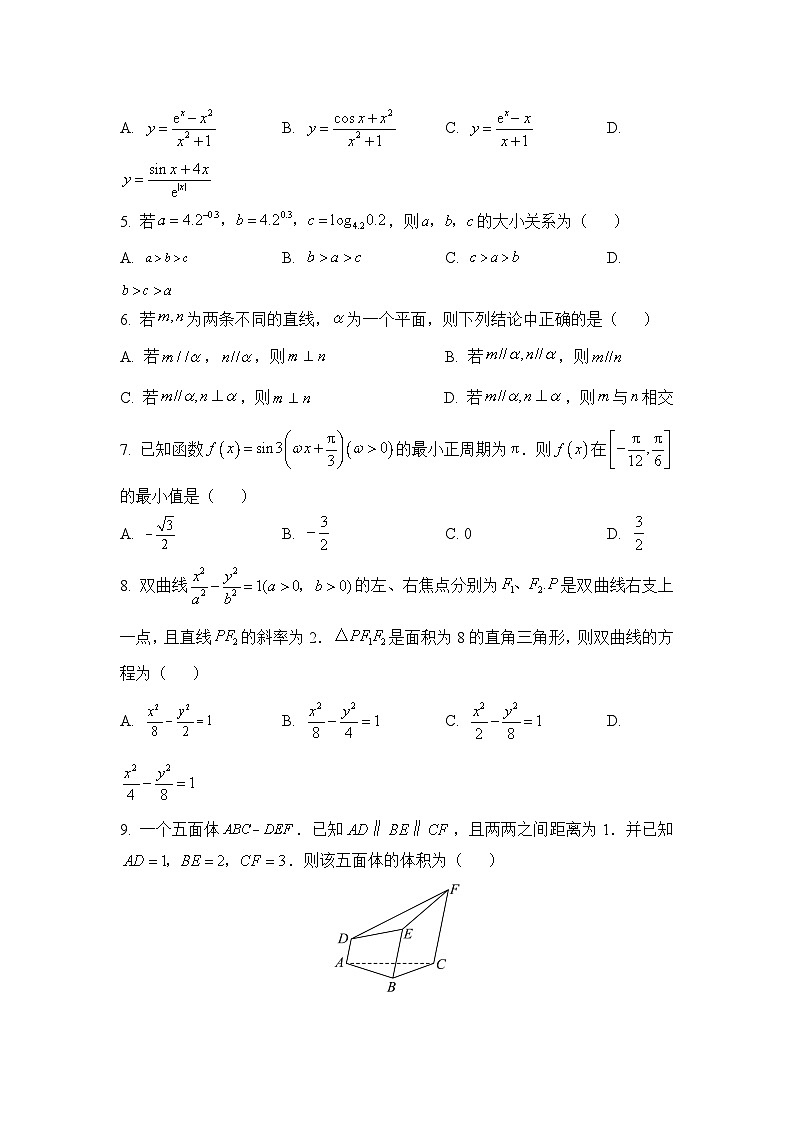 A. y = (e^x − x^2)/(x^2 + 1) B. y = (cos x + x^2)/(x^2 + 1) C. y = (e^x − x)/(x + 1) D.
y = (sin x + 4x)/e^|x|
5. 若 a = 4.2^−0.3，b = 4.2^0.3，c = log_4.2 0.2，则 a，b，c 的大小关系为（ ）
A. a > b > c B. b > a > c C. c > a > b D.
b > c > a
6. 若 m, n 为两条不同的直线，α 为一个平面，则下列结论中正确的是（ ）
A. 若 m//α，n//α，则 m ⊥ n B. 若 m//α, n//α，则 m//n
C. 若 m//α, n ⊥ α，则 m ⊥ n D. 若 m//α, n ⊥ α，则 m 与 n 相交
7. 已知函数 f(x) = sin3(ωx + π/3)(ω > 0) 的最小正周期为 π．则 f(x) 在 [−π/12, π/6]
的最小值是（ ）
A. −√3/2 B. −3/2 C. 0 D. 3/2
8. 双曲线 x^2/a^2 − y^2/b^2 = 1(a > 0，b > 0) 的左、右焦点分别为 F₁、F₂. P 是双曲线右支上
一点，且直线 PF₂ 的斜率为 2．△PF₁F₂ 是面积为 8 的直角三角形，则双曲线的方
程为（ ）
A. x^2/8 − y^2/2 = 1 B. x^2/8 − y^2/4 = 1 C. x^2/2 − y^2/8 = 1 D.
x^2/4 − y^2/8 = 1
9. 一个五面体 ABC − DEF．已知 AD∥BE∥CF，且两两之间距离为 1．并已知
AD = 1，BE = 2，CF = 3．则该五面体的体积为（ ）
F
D
E
A
C
B